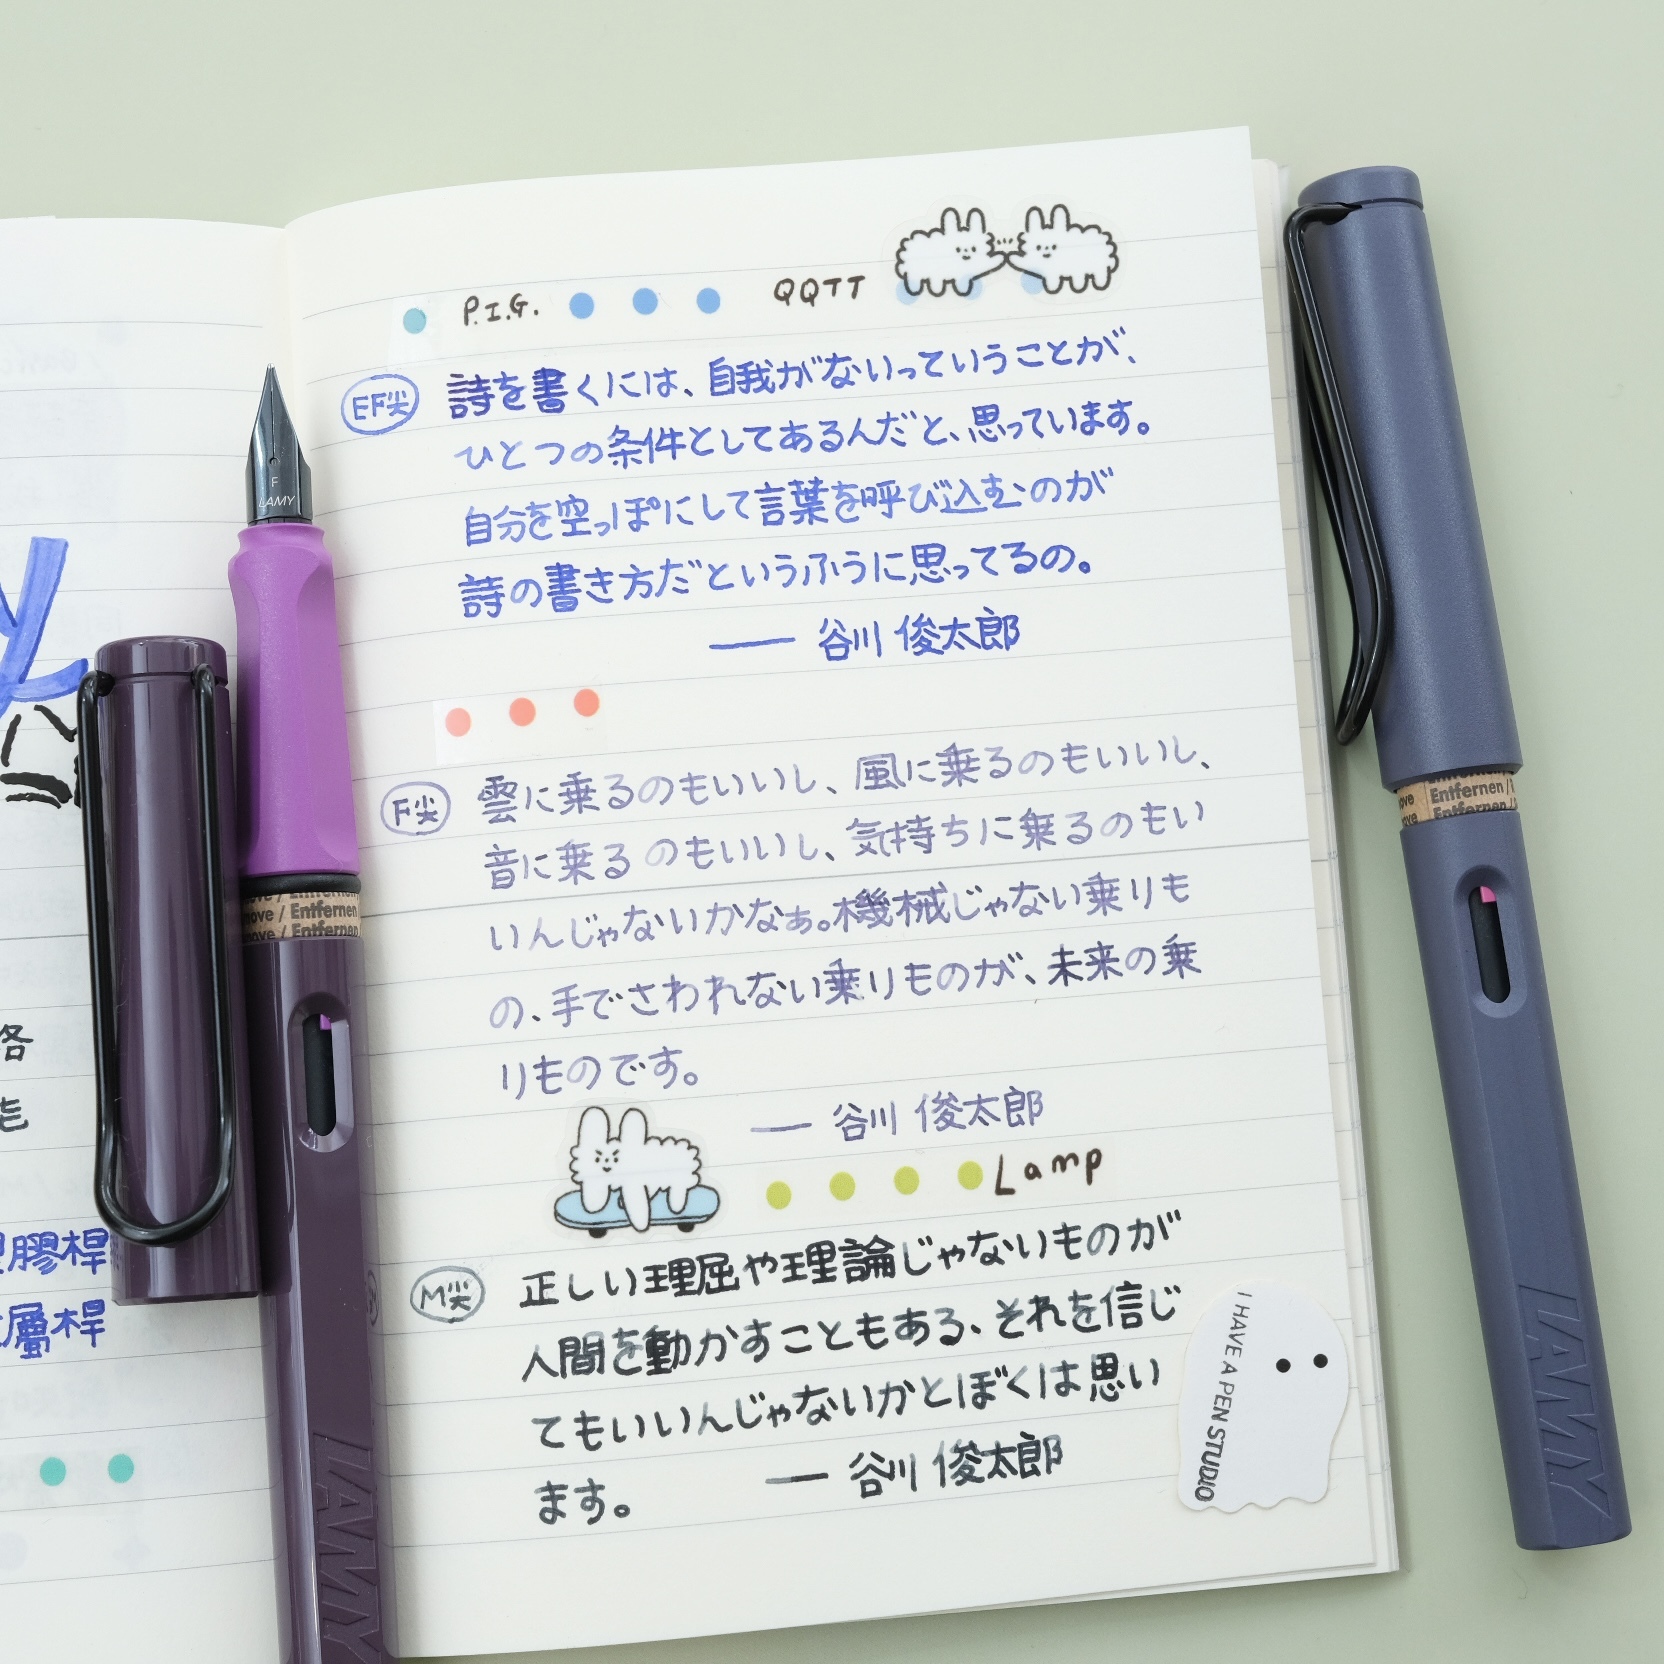 P.I.G. QQTT
EF尖 詩を書くには、自我がないっていうことが、
ひとつの条件としてあるんだと、思っています。
自分を空っぽにして言葉を呼び込むのが
詩の書き方だというふうに思ってるの。
—— 谷川 俊太郎
F尖 雲に乗るのもいいし、風に乗るのもいいし、
音に乗るのもいいし、気持ちに乗るのもい
いんじゃないかなぁ。機械じゃない乗りも
の、手でさわれない乗りものが、未来の乗
りものです。
—— 谷川 俊太郎
Lamp
M尖 正しい理屈や理論じゃないものが
人間を動かすこともある、それを信じ
てもいいんじゃないかとぼくは思い
ます。 —— 谷川 俊太郎
I HAVE A PEN STUDIO
F
LAMY
move / Entfernen
LAMY
ove Entfernen /
LAMY
膠桿
層桿